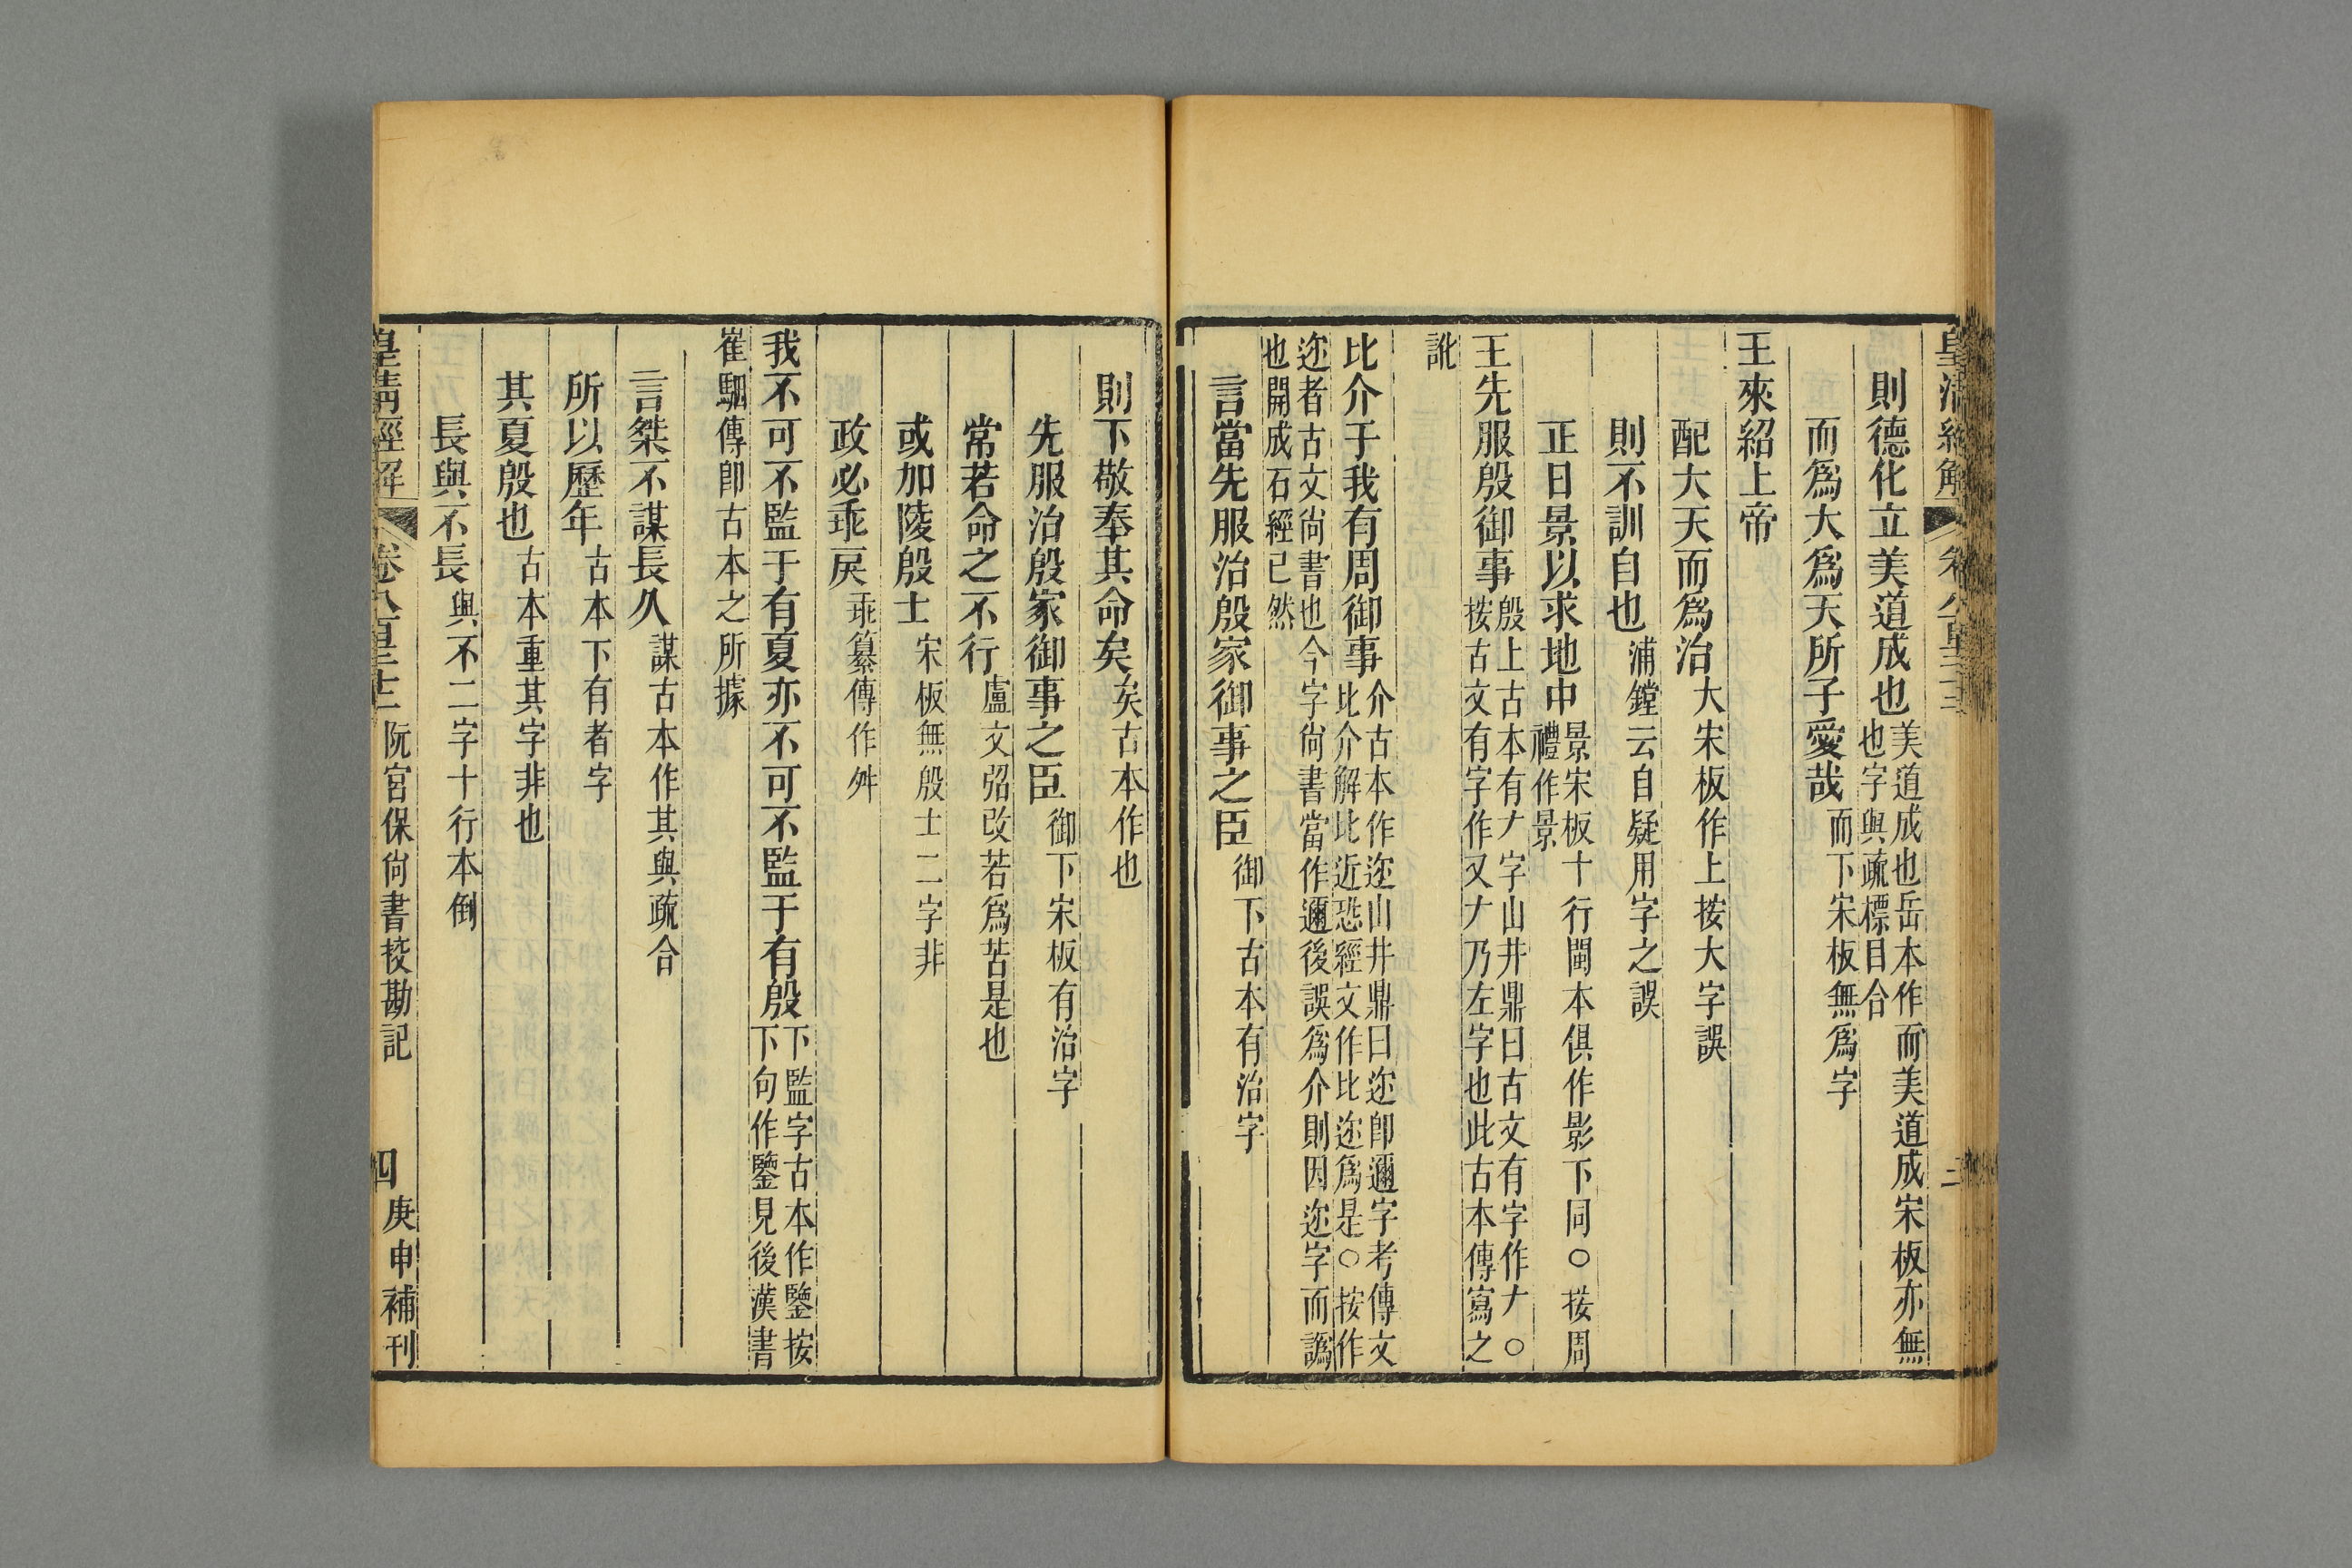 則德化立美道成也美道成也岳本作而美道成宋板亦無
也字與疏標目合
而爲大爲天所子愛哉而下宋板無爲字
王來紹上帝
配大天而爲治大宋板作上按大字誤
則不訓自也浦鏜云自疑用字之誤
正日景以求地中景宋板十行閩本俱作影下同○按周
禮作景
王先服殷御事殷上古本有ナ字山井鼎曰古文有字作ナ○
按古文有字作又ナ乃左字也此古本傳寫之
訛
比介于我有周御事介古本作迩山井鼎曰迩卽邇字考傳文
比介解比近恐經文作比迩爲是○按作
迩者古文尙書也今字尙書當作邇後誤爲介則因迩字而譌
也開成石經已然
言當先服治殷家御事之臣御下古本有治字
則下敬奉其命矣矣古本作也
先服治殷家御事之臣御下宋板有治字
常若命之不行盧文弨改若爲苦是也
或加陵殷士宋板無殷士二字非
政必乖戾乖纂傳作舛
我不可不監于有夏亦不可不監于有殷下監字古本作鑒按
下句作鑒見後漢書
崔駰傳卽古本之所據
言桀不謀長久謀古本作其與疏合
所以歷年古本下有者字
其夏殷也古本重其字非也
長與不長與不二字十行本倒
皇淸經解 阮宮保尙書挍勘記 四 庚申補刊